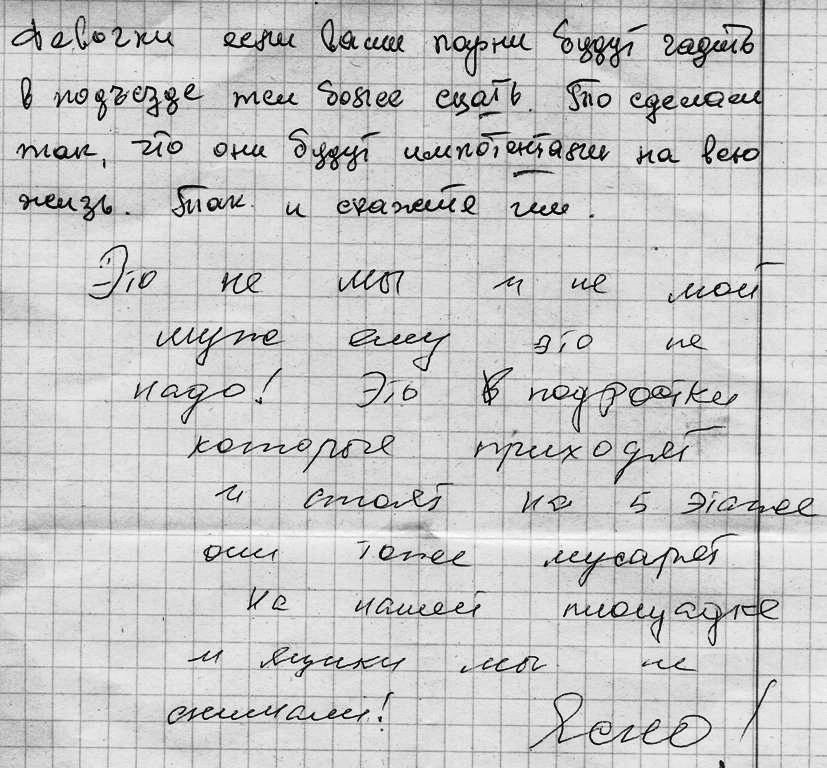 Девочки если ваши парни будут гадить
в подъезде тем более сцать. То сделаем
так, что они будут импотентами на всю
жизь. Так и скажите им.
Это не мы и не мой
муж ему это не
надо! Это подростки
которые приходят
и стоят на 5 этаже
они тоже мусарят
на нашей площадке
и ящики мы не
снимали! Ясно!